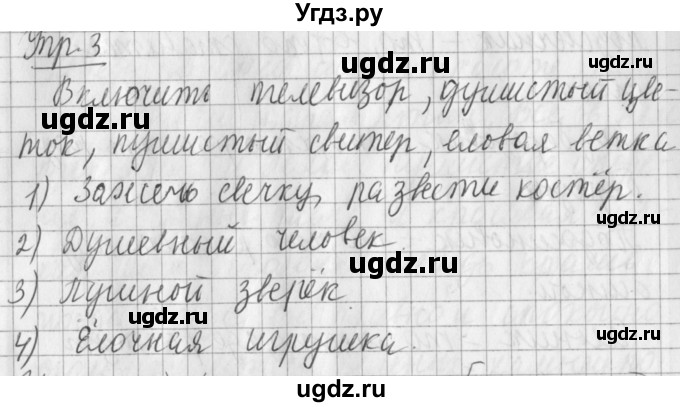 Угдз.ру
Упр. 3
ugdz.ru
Включить телевизор, душистый цве-
ugdz.ru ugdz.ru
ток, пушистый свитер, еловая ветка
ugdz.ru
1) Зажечь свечку, развести костёр.
ugdz.ru
2) Душевный человек.
ugdz.ru
3) Пушной зверёк.
ugdz.ru
4) Ёлочная игрушка.
ugdz.ru
ugdz.ru